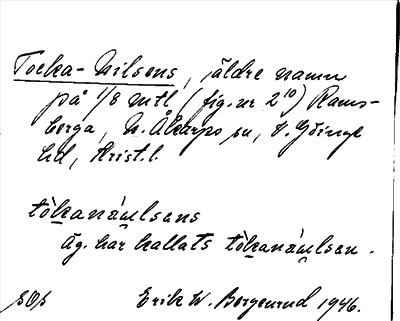 Tocka-Nilsens, äldre namn
på 1/8 mtl (fig. nr 2¹⁰) Rams-
berga, N. Åkarps sn, V. Göinge
hd, Krist. l.
tòkanáu̯lsens
Äg. har kallats tòkanáu̯lsen.
Erik W. Bergenrud 1946.